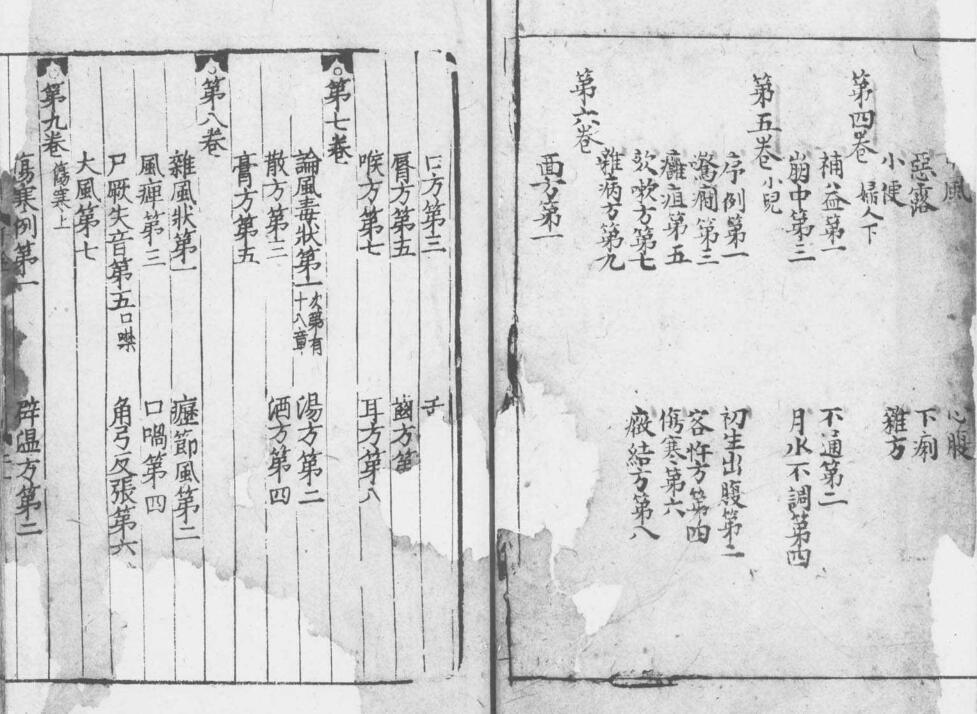 風 心腹
惡露 下痢
小便 雜方
第四卷 婦人下
補益第一 不通第二
崩中第三 月水不調第四
第五卷 小兒
序例第一 初生出腹第二
驚癇第三 客忤方第四
癰疽第五 傷寒第六
欬嗽方第七 癥結方第八
雜病方第九
第六卷
面方第一
口方第三 舌
脣方第五 齒方第
喉方第七 耳方第八
第七卷
論風毒狀第一 次第有十八章 湯方第二
散方第三 酒方第四
膏方第五
第八卷
雜風狀第一 癧節風第二
風痺第三 口喎第四
尸厥失音第五 口噤 角弓反張第六
大風第七
第九卷 傷寒上
傷寒例第一 辟温方第二